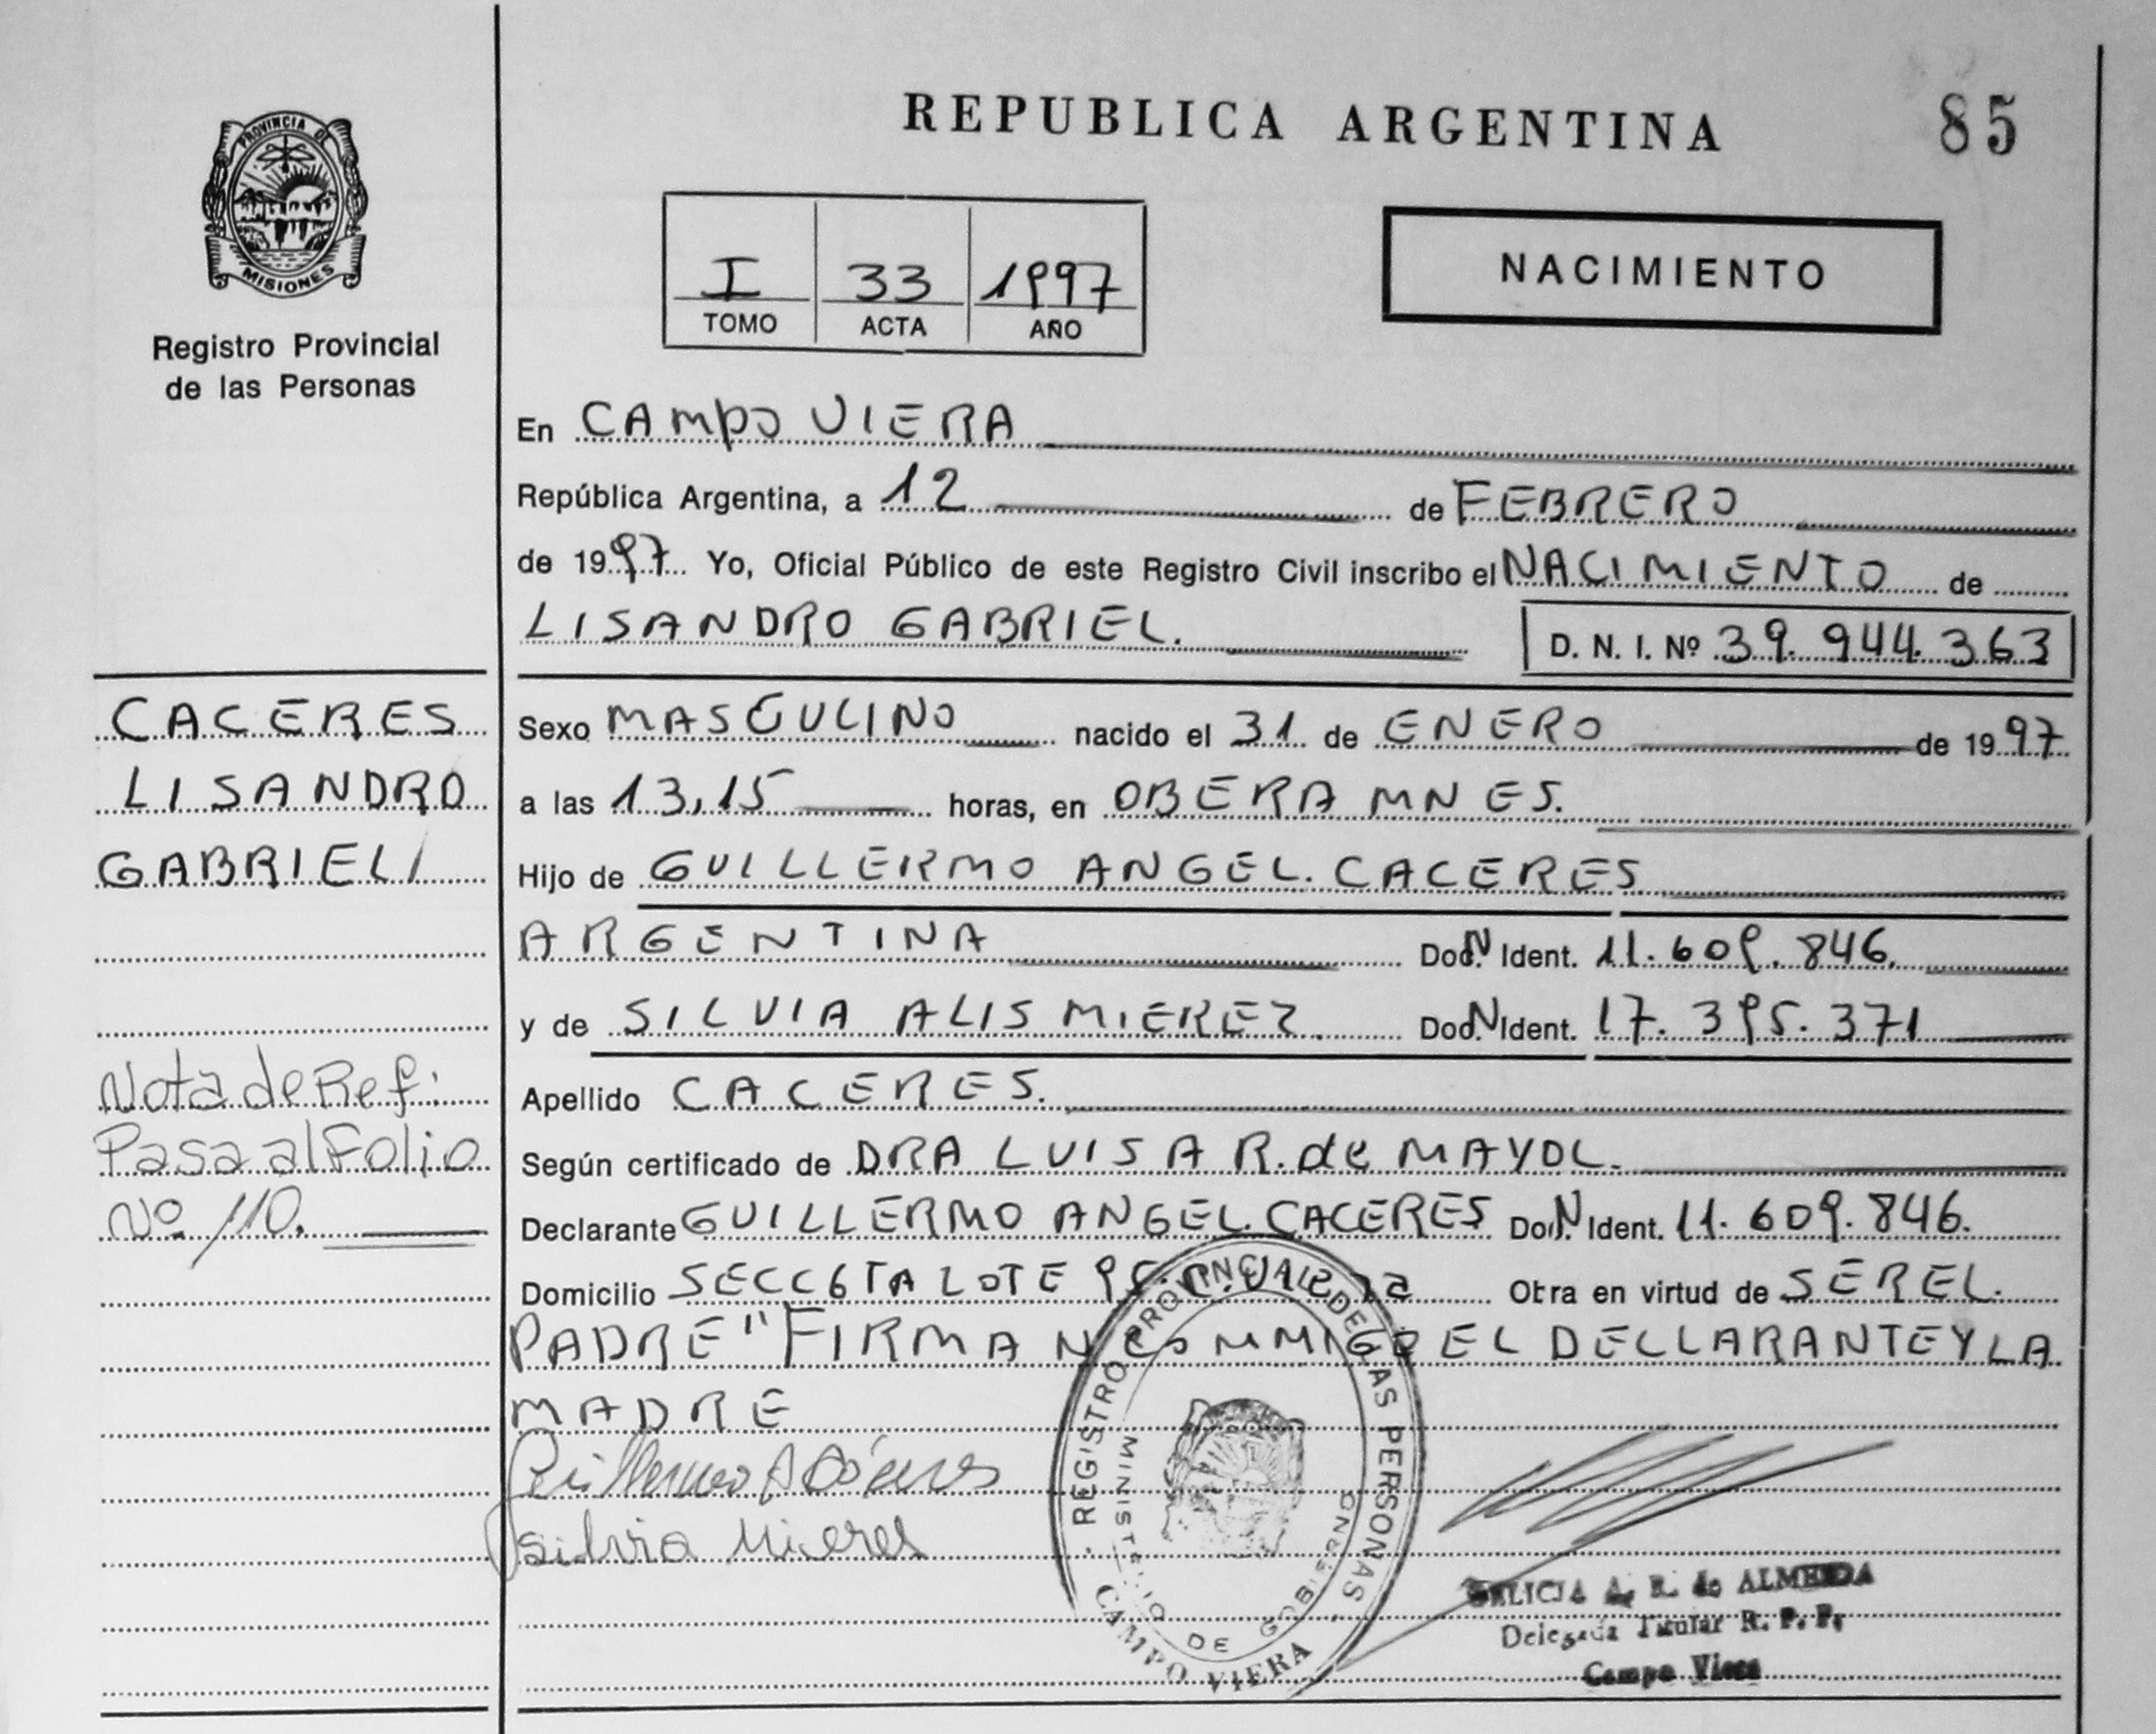 REPUBLICA ARGENTINA
85
PROVINCIA DE
MISIONES
Registro Provincial
de las Personas
I 33 1997
TOMO ACTA AÑO
NACIMIENTO
En CAMPO VIERA
República Argentina, a 12 de FEBRERO
de 1997 Yo, Oficial Público de este Registro Civil inscribo el NACIMIENTO de
LISANDRO GABRIEL.
D. N. I. Nº 39.944.363
CACERES
LISANDRO
GABRIEL
Sexo MASCULINO nacido el 31 de ENERO de 1997
a las 13,15 horas, en OBERA MNES.
Hijo de GUILLERMO ANGEL. CACERES
ARGENTINA Doc. N Ident. 11.609.846.
y de SILVIA ALIS MIEREZ. Doc. N Ident. 17.395.371
Nota de Ref:
Pasa al Folio
Nº 110.
Apellido CACERES.
Según certificado de DRA LUISA R. de MAYOL.
Declarante GUILLERMO ANGEL. CACERES Doc. N Ident. 11.609.846.
Domicilio SECC 6TA LOTE Otra en virtud de SEREL.
PADRE" FIRMAN CONMIGO EL DECLARANTE Y LA
MADRE
Guillermo A Cáceres
Silvia Mieres
REGISTRO PROVINCIAL DE LAS PERSONAS
MINISTERIO DE GOBIERNO
CAMPO VIERA
A. R. de ALMEIDA
Delegada Titular R. P. P.
Campo Viera